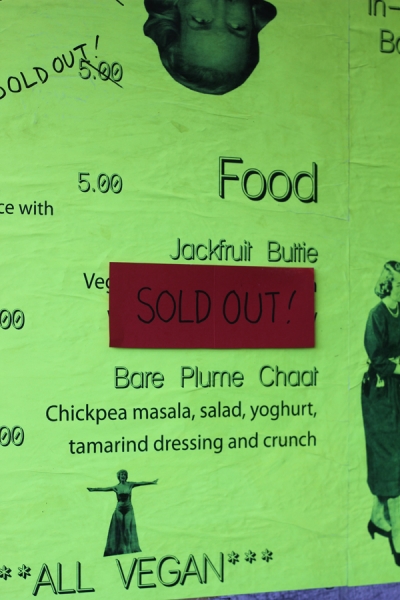 In-
SOLD OUT!
5.00
5.00
Food
ce with
Jackfruit Buttie
Veg
SOLD OUT!
00
Bare Plume Chaat
Chickpea masala, salad, yoghurt,
00
tamarind dressing and crunch
**ALL VEGAN***